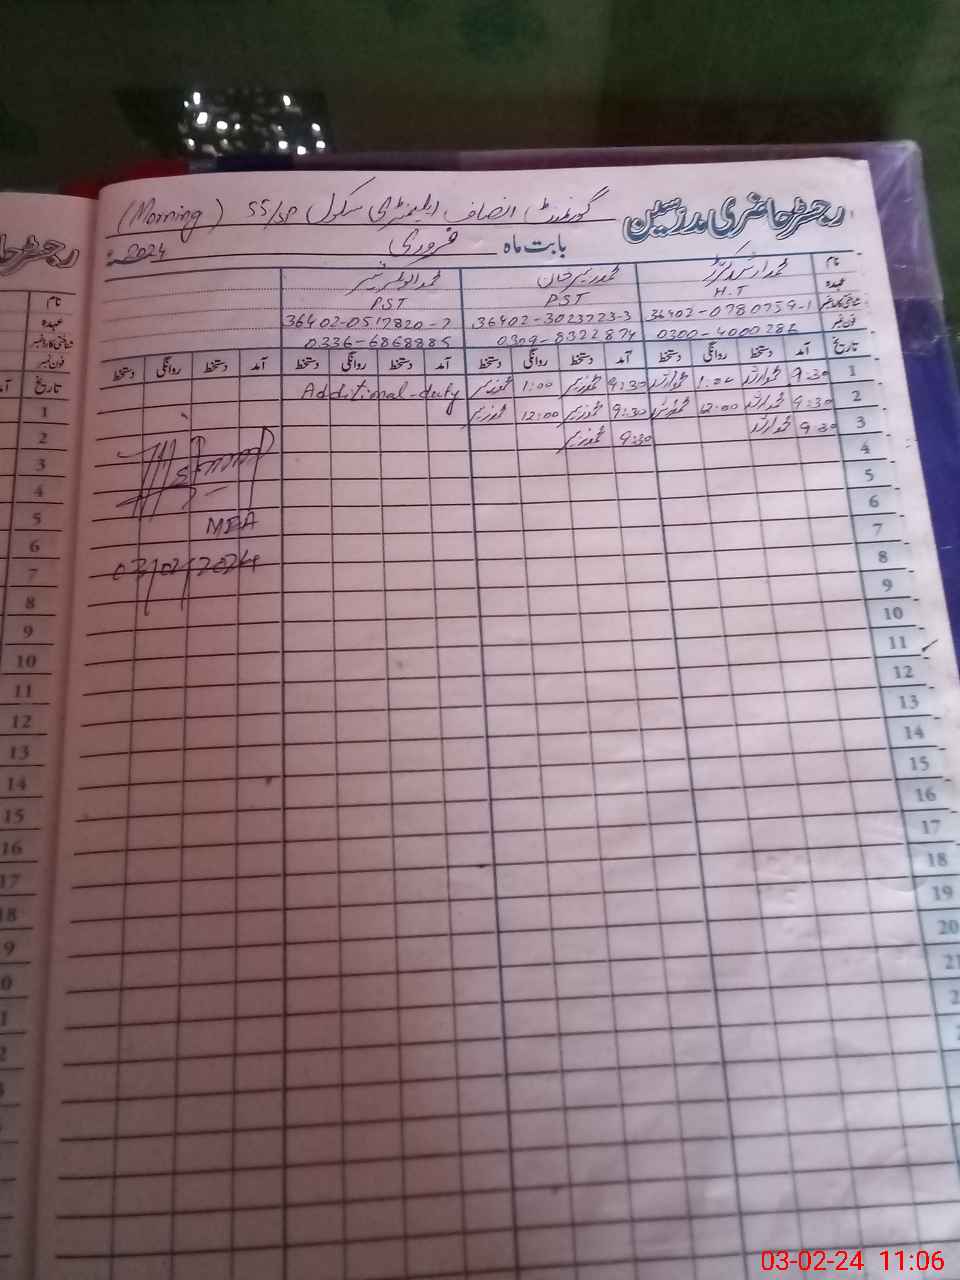 رجسٹر حاضری مدرسین گورنمنٹ انصاف ایلیمنٹری سکول 55/SP (Morning)
بابت ماہ فروری 2024ء
نام محمد ارشد محمد خان محمد
عہدہ H.T PST PST
شناختی کارڈ نمبر 36402-0780759-1 36402-3023723-3 36402-0517820-7
فون نمبر 0300-4000286 0309-8322874 0336-6868885
تاریخ آمد دستخط روانگی دستخط آمد دستخط روانگی دستخط آمد دستخط روانگی دستخط آمد دستخط روانگی دستخط
1 9:30 1:00 9:30 1:00 Additional-duty
2 9:30 12:00 9:30 12:00
3 9:30 9:30
4
5
6
7
8
9
10
11
12
13
14
15
16
17
18
19
20
21
MEA
03/02/2024
رجسٹر
نام
عہدہ
شناختی کارڈ نمبر
فون نمبر
تاریخ
1
2
3
4
5
6
7
8
9
10
11
12
13
14
15
16
17
18
03-02-24 11:06